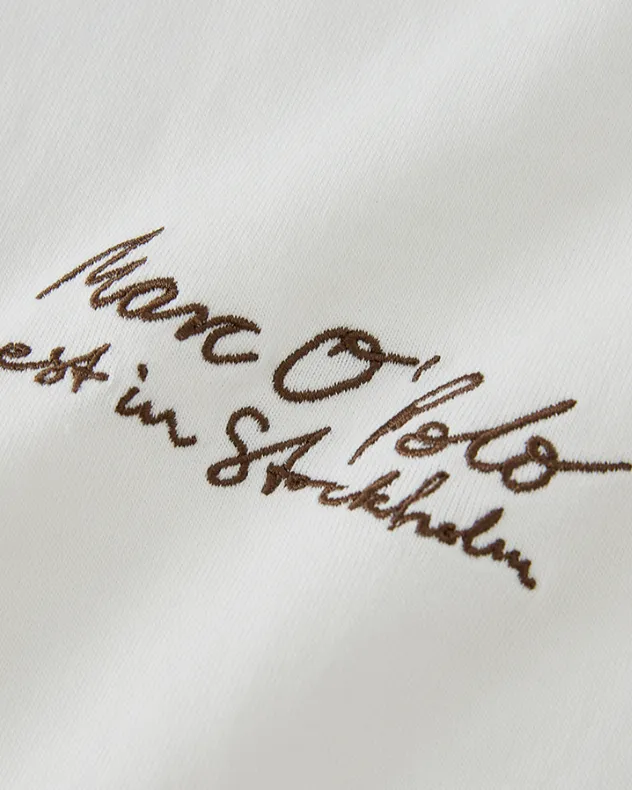 Marc O'Polo
est in Stockholm